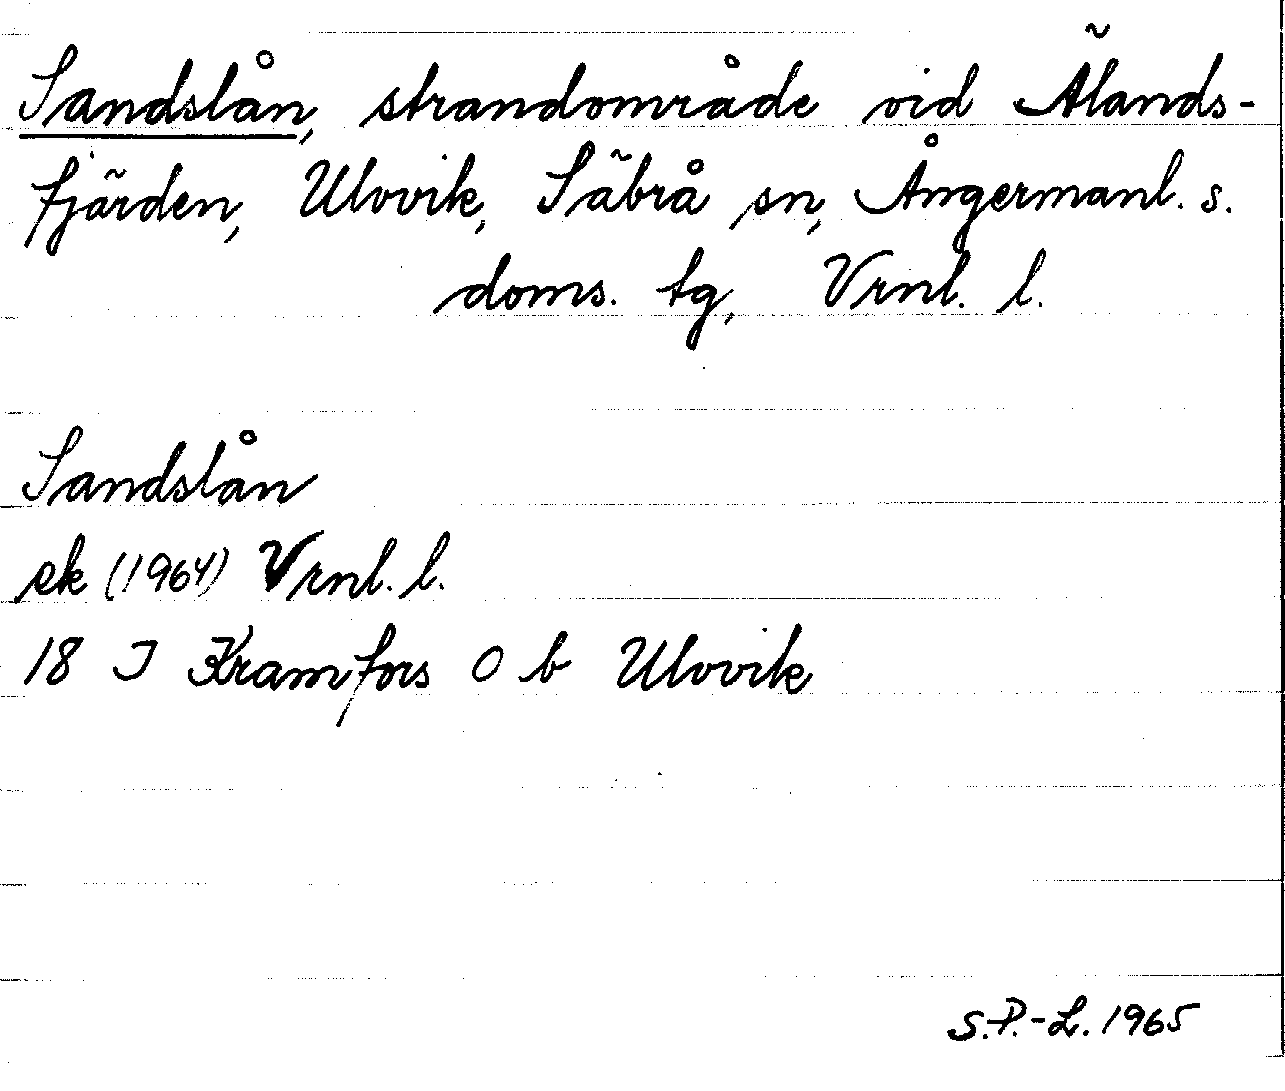 Sandslån, strandområde vid Älands-
fjärden, Ulvvik, Säbrå sn, Ångermanl. s.
doms. tg, Vrnl. l.
Sandslån
ek (1964) Vrnl. l.
18 I Kramfors O b Ulvvik
S.P.-L. 1965